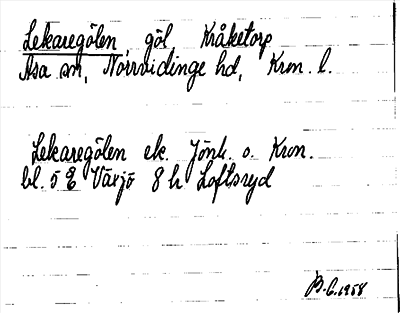 Lekaregölen, göl Kråketorp
Asa sn, Norrvidinge hd, Kron. l.
Lekaregölen ek. Jönk. o. Kron.
bl. 5 E Växjö 8 h Loftsryd
B. G. 1958